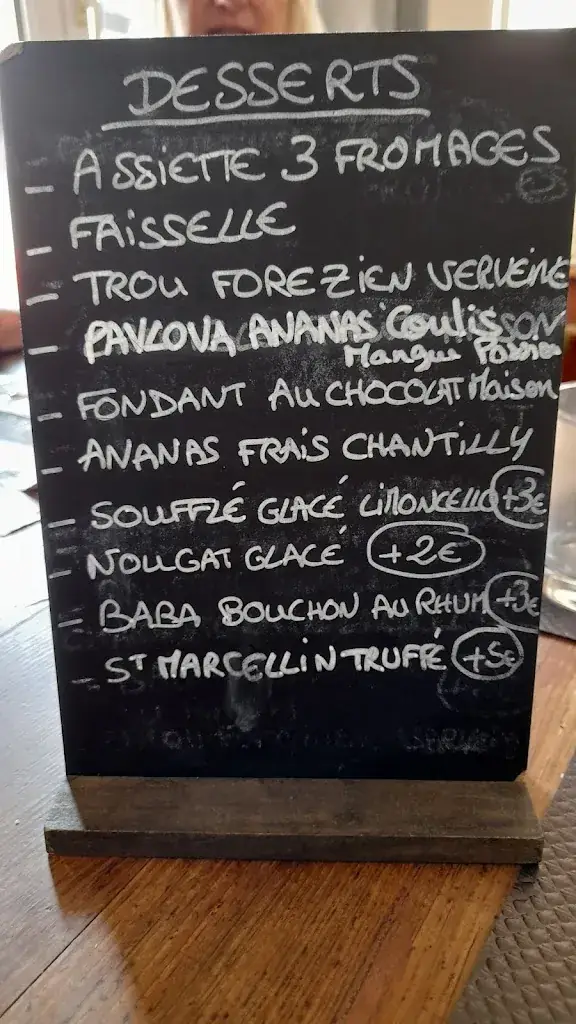 DESSERTS
- ASSIETTE 3 FROMAGES
- FAISSELLE
- TROU FOREZIEN VERVEINE
- PAVLOVA ANANAS Coulis
Mangue Passion
- FONDANT AU CHOCOLAT Maison
- ANANAS FRAIS CHANTILLY
- SOUFFLÉ GLACÉ LIMONCELLO +3€
- NOUGAT GLACÉ +2€
- BABA BOUCHON AU RHUM +3€
- ST MARCELLIN TRUFFÉ +5€